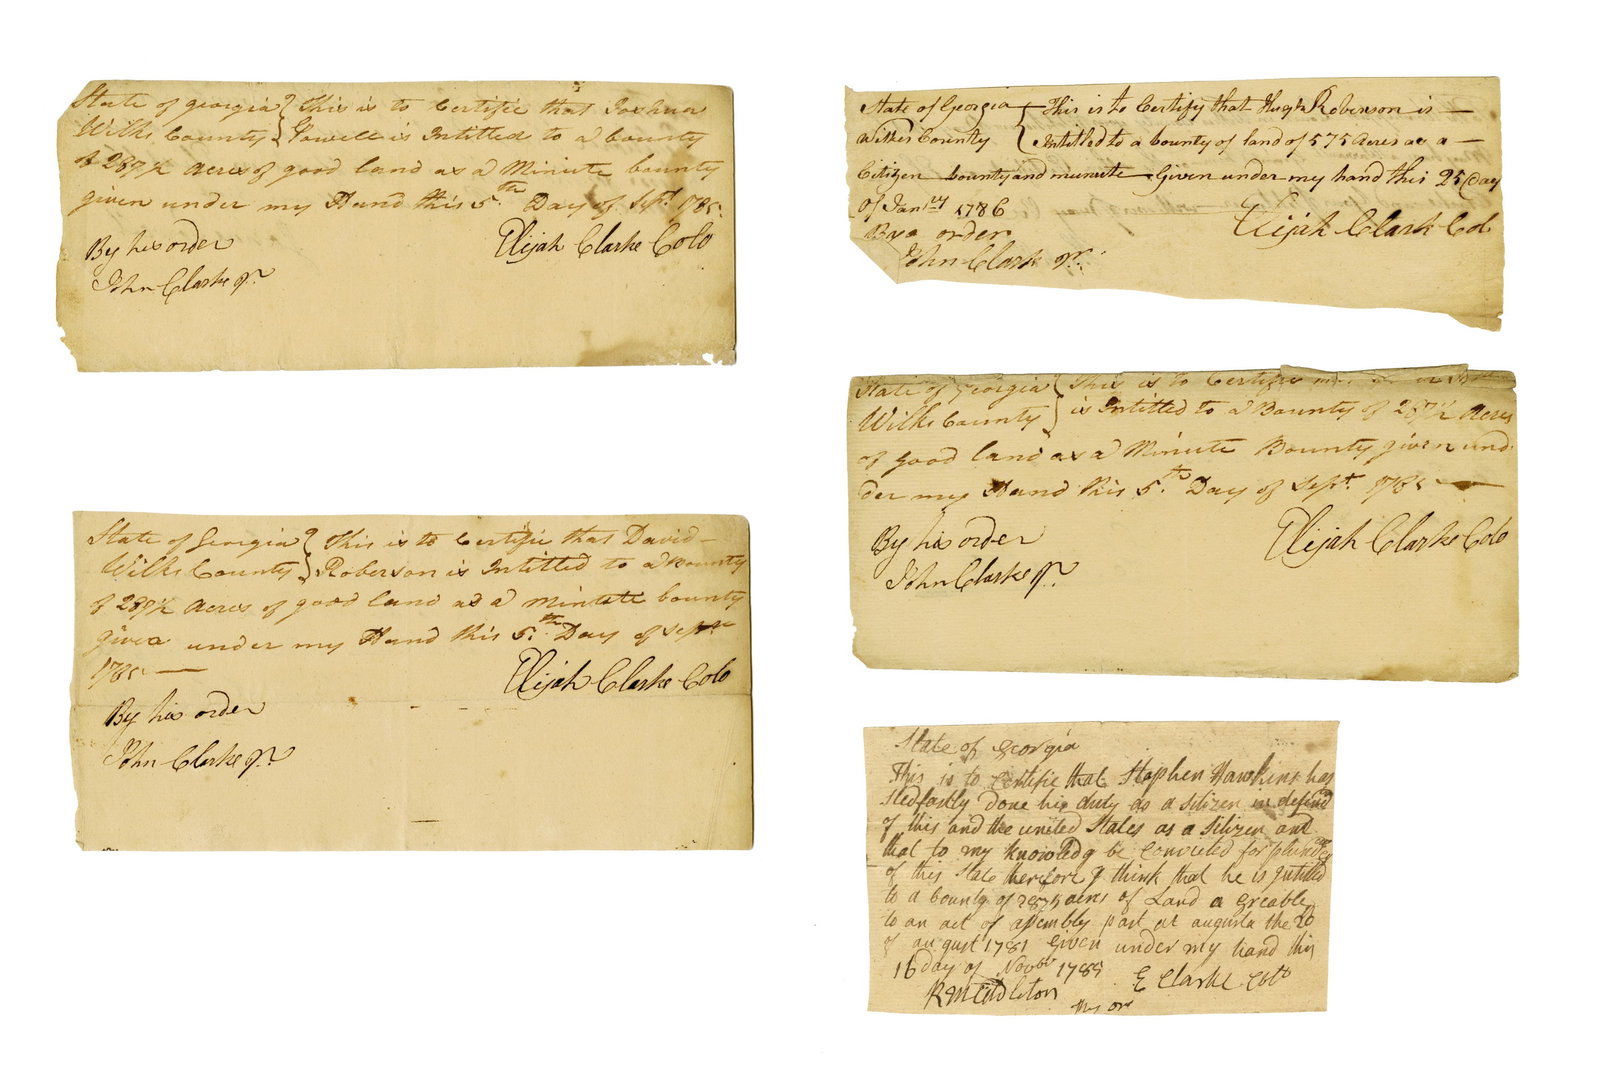 State of georgia } This is to Certifie that Joshua
Wilks County } Powell is Intitled to a bounty
of 287½ Acres of good land as a Minute bounty
given under my Hand this 5.th Day of Sept. 1785.
Elijah Clarke Colo
By his order
John Clarke Jr.
State of Georgia } This is to Certifie that David
Wilks County } Roberson is Intitled to a Bounty
of 287½ Acres of good land as a Minute bounty
given under my Hand this 5.th Day of Sept.
1785
Elijah Clarke Colo
By his order
John Clarke Jr.
State of Georgia { This is to Certify that Hugh Roberson is
Wilkes County { Intitled to a bounty of land of 575 acres as a
Citizen bounty and munite Given under my hand this 25 Day
of Janry 1786
Elijah Clark Col
order
John Clark Jr.
State of georgia { This is to Certifie
Wilks County } is Intitled to a Bounty of 287½ Acres
of good land as a Minute Bounty given und
der my Hand this 5.th Day of Sept. 1785
Elijah Clarke Colo
By his order
John Clarke Jr.
State of Georgia
This is to Certifie that Stephen Hawkins has
stedfastly done his duty as a sitizen in defend
of this and the united States as a sitizen and
that to my knowledg be Convicted for
of this State therefore I think that he is Intitled
to a bounty of 287½ acres of Land a Greable
to an act of assembly past at augusta the 20
of august 1781 Given under my hand this
16 day of Novbr 1785
E Clarke Colo
R Middleton